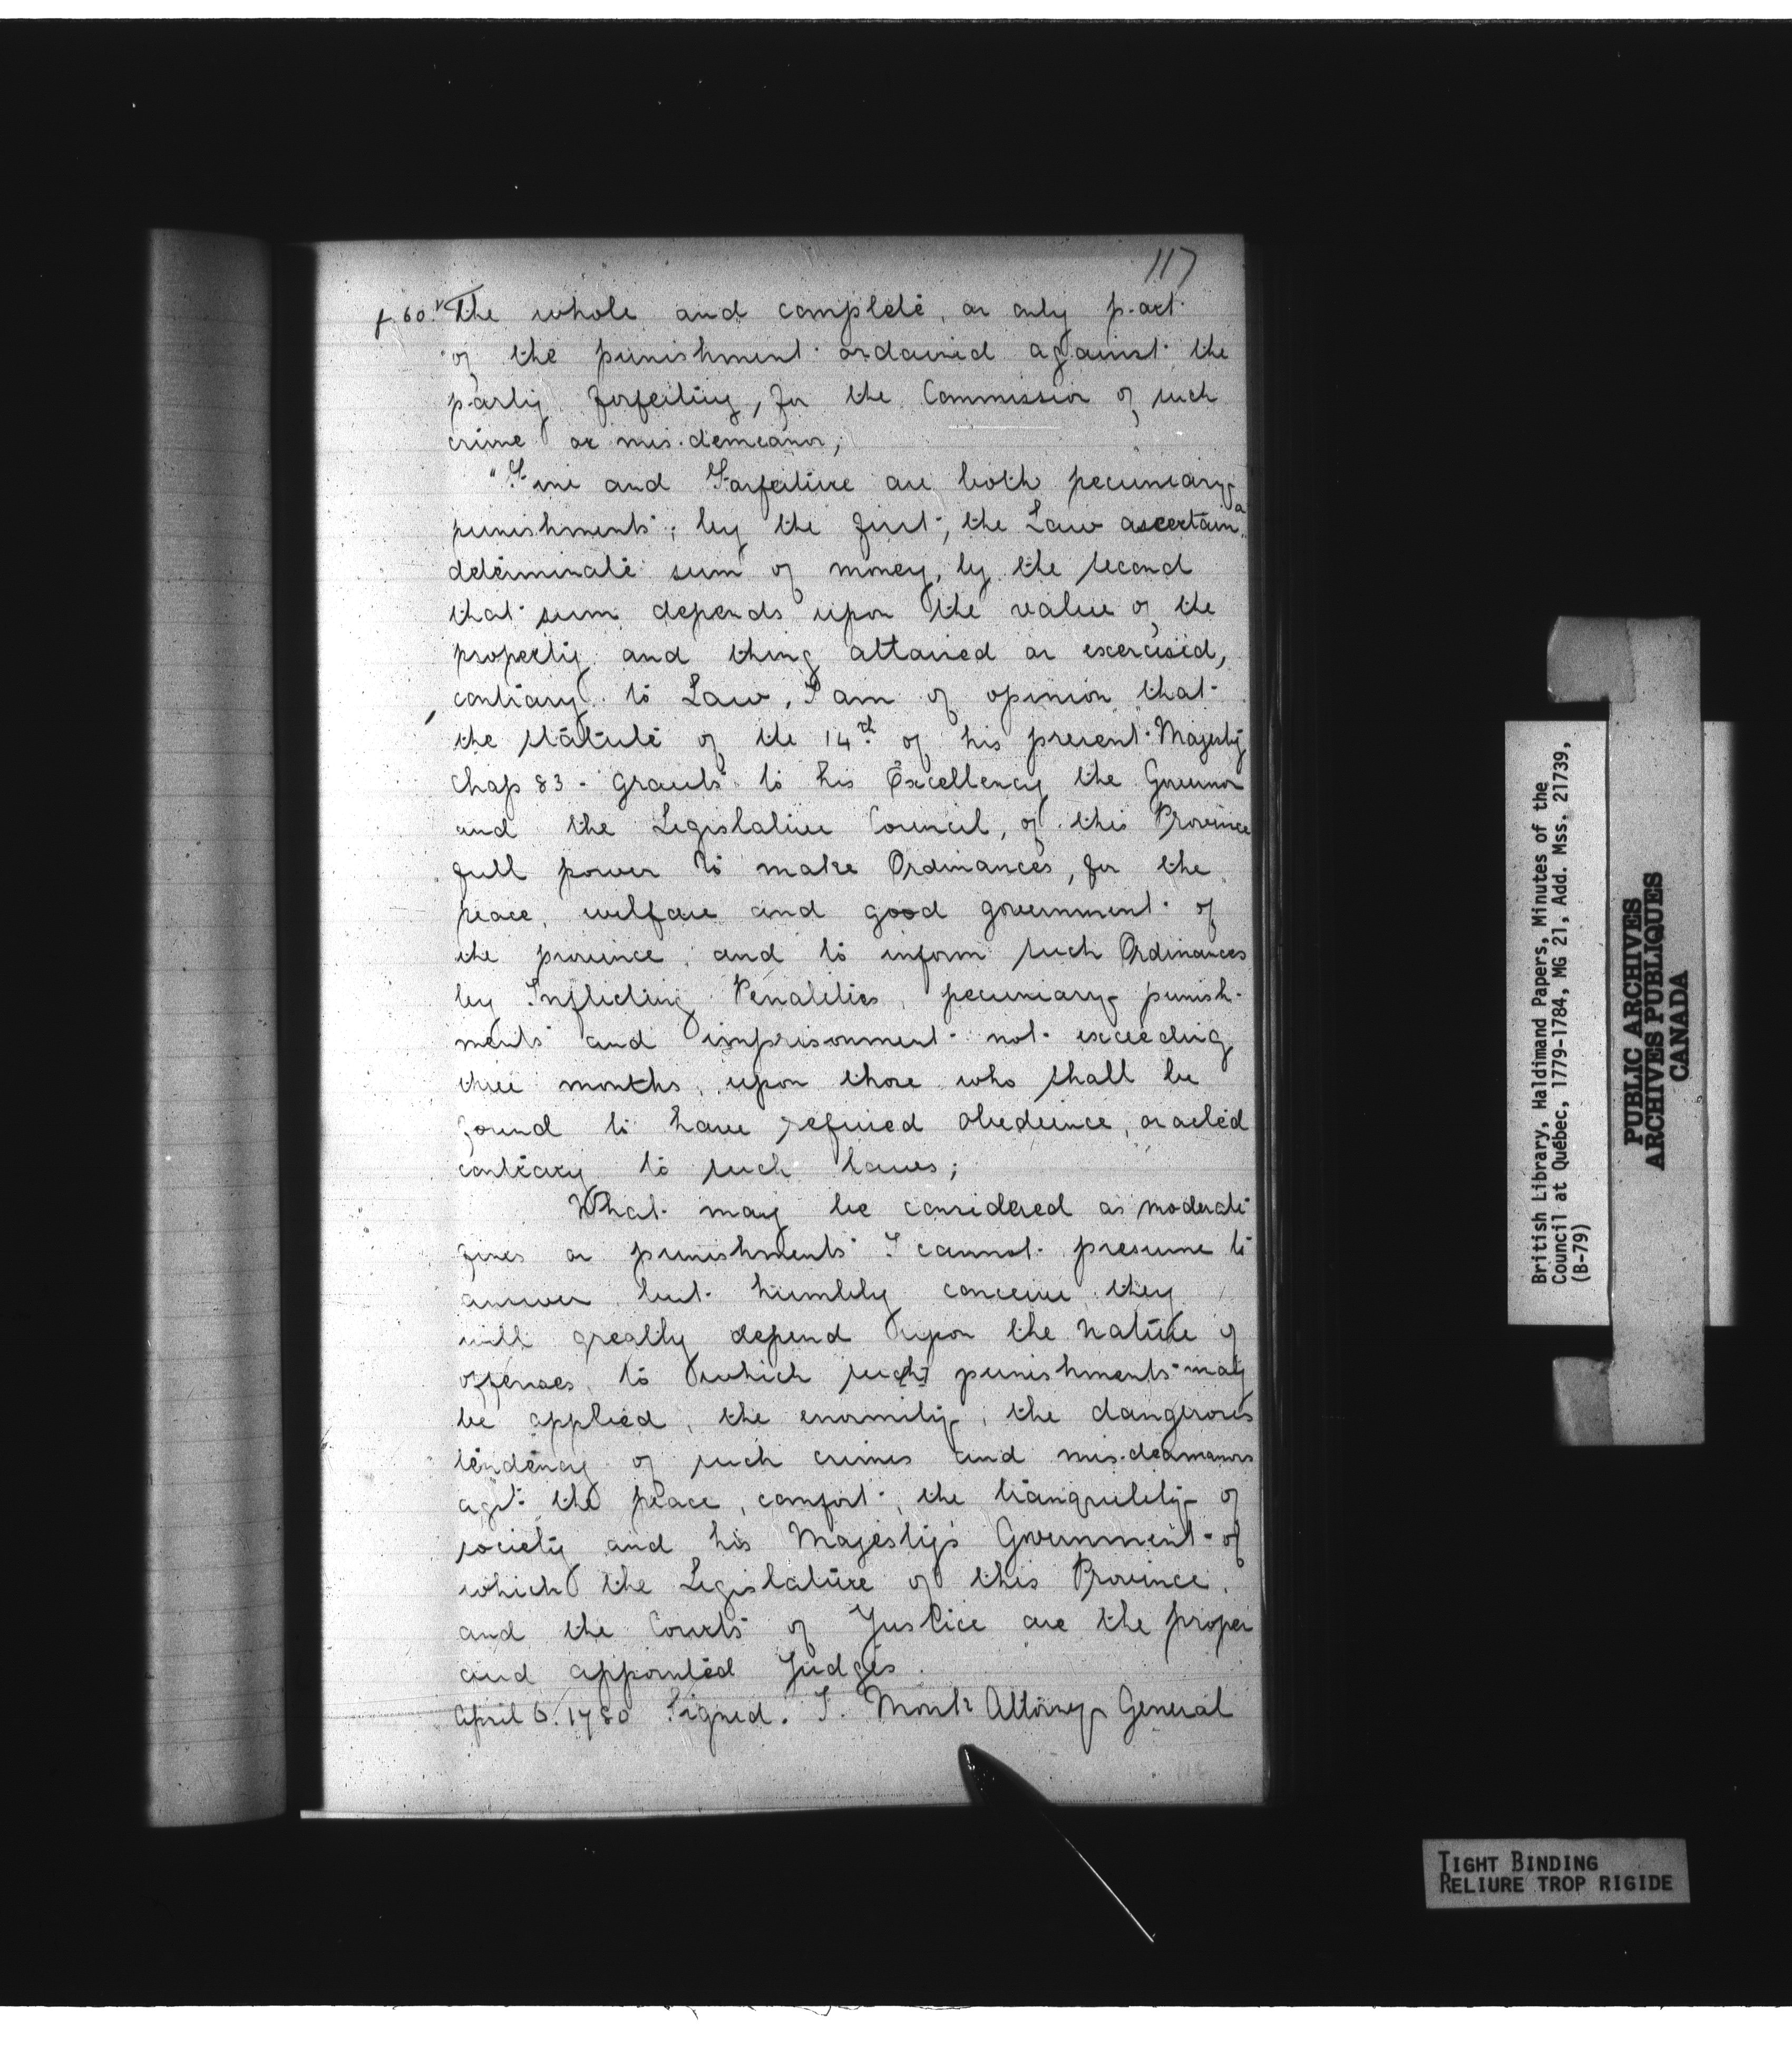 117
f. 60.v The whole and complete, or only part
of the punishment ordained against the
party forfeiting, for the Commission of such
crime or mis.demeanor,
"Fine and Forfeiture are both pecuniary
punishments; by the first, the Law ascertain a
determinate sum of money, by the second
that sum depends upon the value of the
property and thing attained or exercised,
contrary to Law, I am of opinion that
the Statute of the 14th of his present Majesty
Chap 83 - grants to his Excellency the Governor
and the Legislative Council, of this Province
full power to make Ordinances, for the
peace, welfare and good government of
the province, and to inform such Ordinances
by Inflicting Penalities, pecuniary punish-
ments and imprisonment not exceeding
three months, upon those who shall be
found to have refused obedience, or acted
contrary to such laws;
What may be considered as moderate
fines or punishments I cannot presume to
answer but humbly conceive they
will greatly depend upon the nature of
offenses, to which such punishments may
be applied, the enormity, the dangerous
tendency of such crimes and mis.deamanors
agst the peace, comfort, the tranquility of
society and his Majesty's Government of
which the Legislature of this Province.
and the Courts of Justice are the proper
and appointed Judges.
April 6. 1780 Signed. J. Monk Attorney General
British Library, Haldimand Papers, Minutes of the
Council at Québec, 1779-1784, MG 21, Add. Mss. 21739,
(B-79)
PUBLIC ARCHIVES
ARCHIVES PUBLIQUES
CANADA
TIGHT BINDING
RELIURE TROP RIGIDE